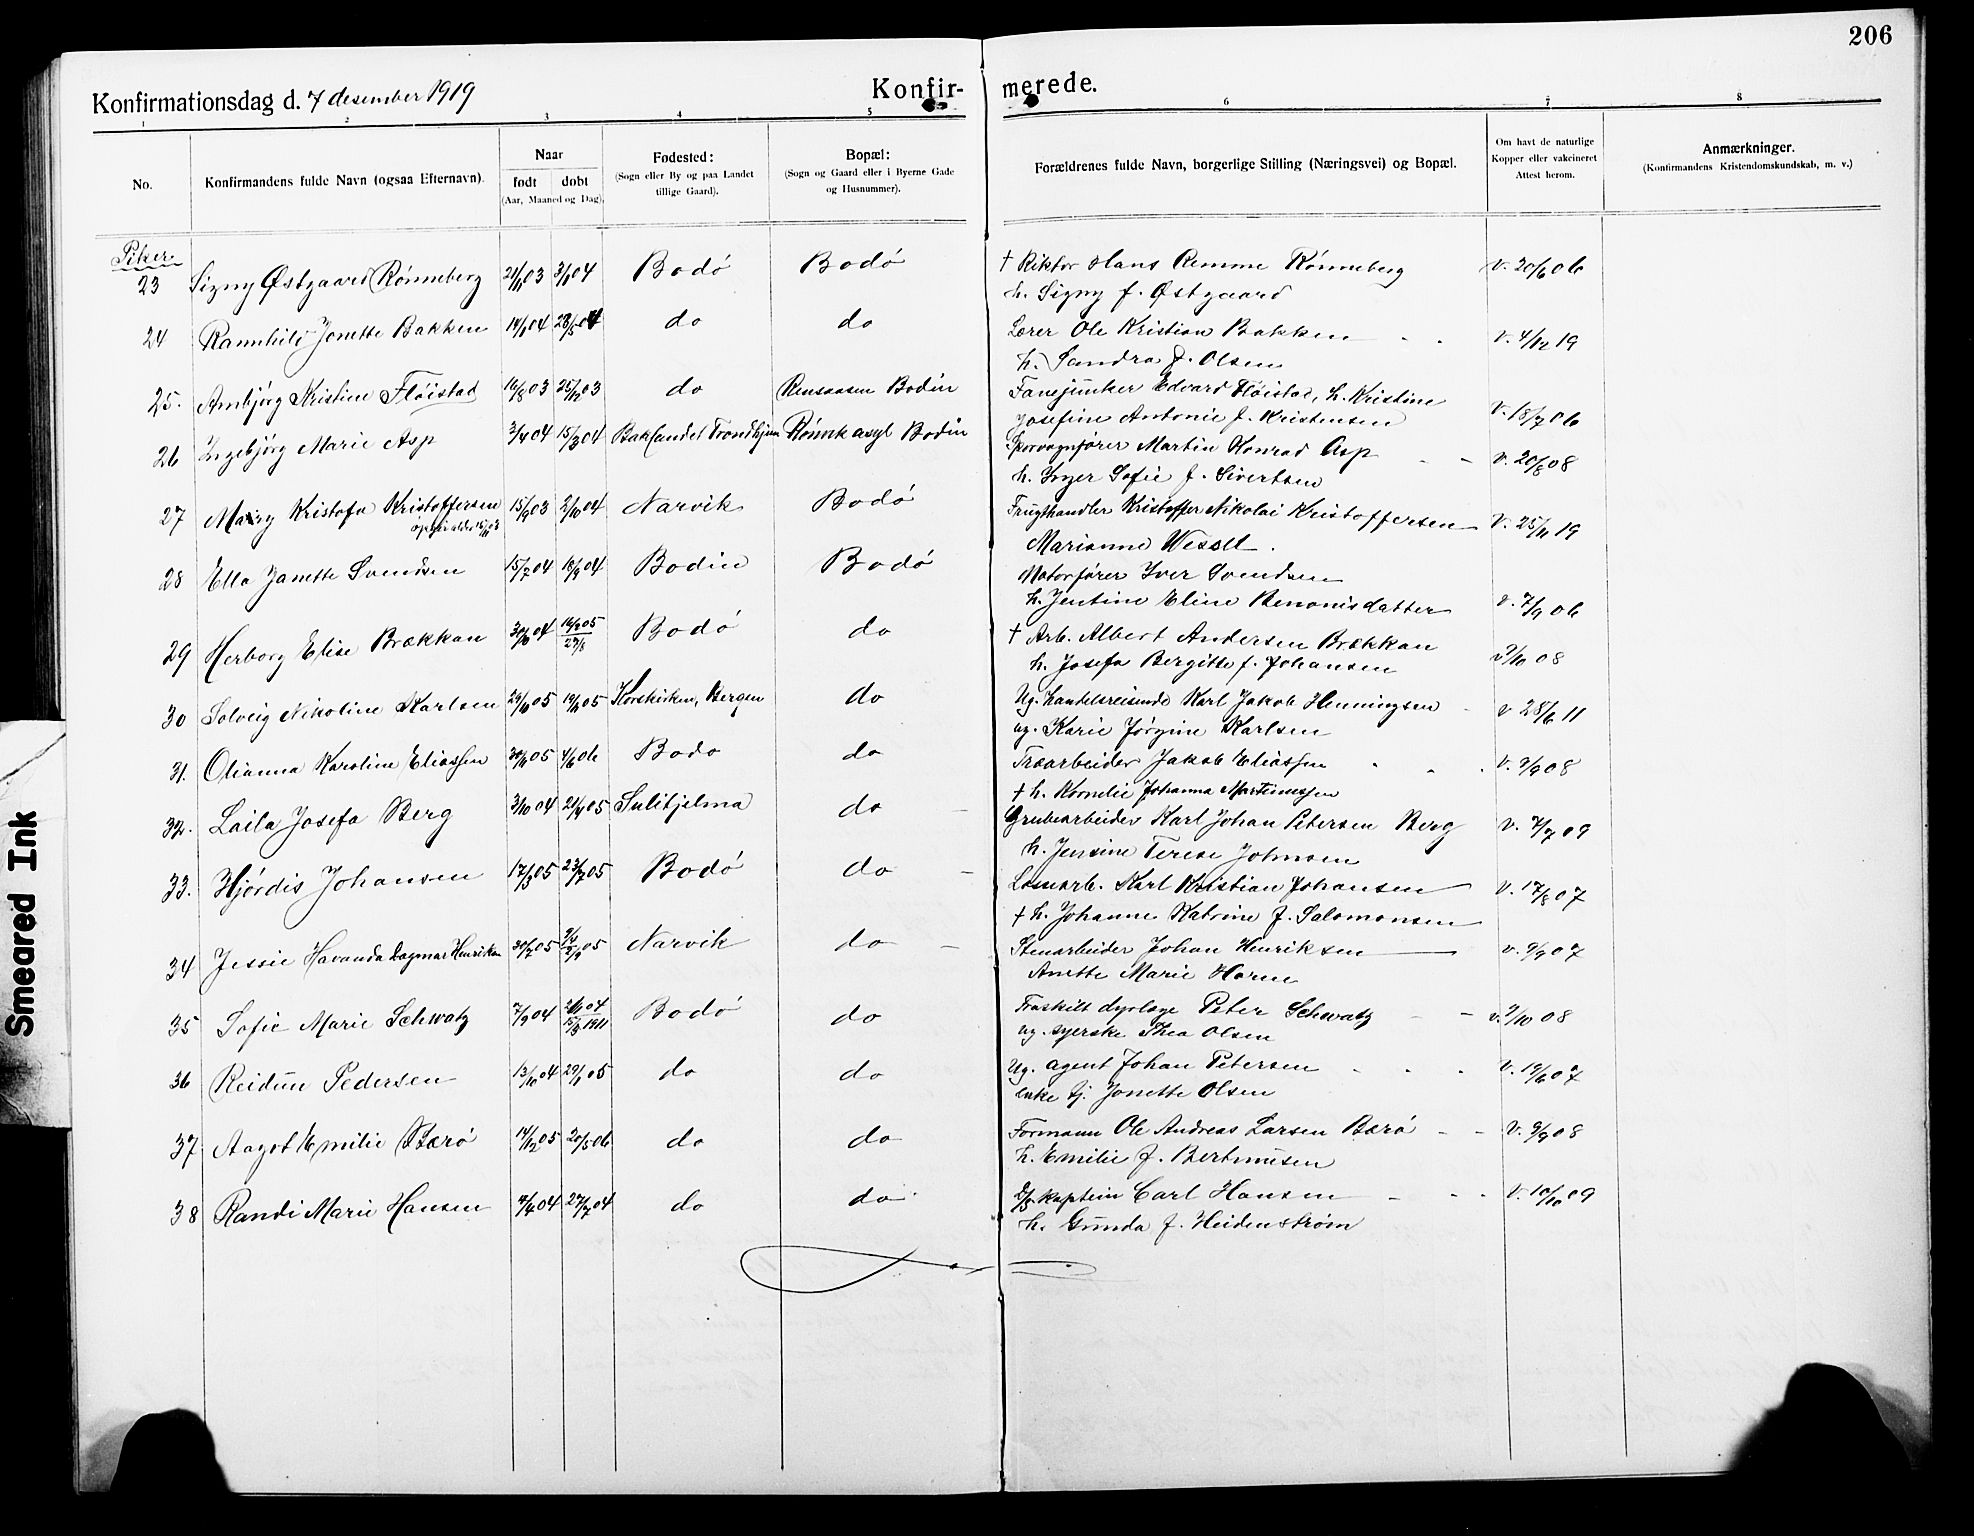 206
Konfirmationsdag d. 7 desember 1919
Konfirmerede.
1 2 3 4 5 6 7 8
No.
Konfirmandens fulde Navn (ogsaa Efternavn).
Naar
født døbt
(Aar, Maaned og Dag).
Fødested:
(Sogn eller By og paa Landet
tillige Gaard).
Bopæl:
(Sogn og Gaard eller i Byerne Gade
og Husnummer).
Forældrenes fulde Navn, borgerlige Stilling (Næringsvei) og Bopæl.
Om havt de naturlige
Kopper eller vakcineret
Attest herom.
Anmærkninger.
(Konfirmandens Kristendomskundskab, m. v.)
Piker
23 Signy Østgaard Rønneberg 21/11 03 3/1 04 Bodø Bodø † Rektor Hans Remme Rønneberg v. 20/6 06
h. Signy f. Østgaard
24 Rannhild Jonette Bakken 14/1 04 28/5 04 do do Lærer Ole Kristian Bakken v. 4/12 19
h. Sandra f. Olsen
25. Arnbjørg Kristine Fløistad 16/8 03 25/12 03 do Rensaasen Bodin Fanejunker Edvard Fløistad, h. Kristine
Josefine Antonie f. Kristensen v. 18/7 06
26 Ingebjørg Marie Asp 3/4 04 15/3 04 Baklandet Trondhjem Rønvik asyl Bodin Sporvognfører Martin Konrad Asp v. 20/8 08
h. Inger Sofie f. Sivertsen
27 Mary Kristofa Kristoffersen 15/9 03 2/10 04 Narvik Bodø Frugthandler Kristoffer Nikolai Kristoffersen v. 25/11 19
Marianne Wessel.
28 Ella Janette Svendsen 15/7 04 18/9 04 Bodin Bodø Motorfører Iver Svendsen
h. Jentine Eline Benonisdatter v. 7/9 06
29 Herborg Elise Brækkan 30/10 04 16/2 05 Bodø do † Arb. Albert Andersen Brækkan
h. Josefa Bergitte f. Johansen v 9/10 08
30 Solveig Nikoline Karlsen 29/10 05 19/11 05 Korskirken, Bergen do Ug. handelsreisende Karl Jakob Henningsen v 28/6 11
ug. Karie Jørgine Karlsen
31. Olianna Karoline Eliassen 30/11 05 4/6 06 Bodø do Træarbeider Jakob Eliassen v. 9/9 08
† h. Kornelie Johanna Martinussen
32. Laila Josefa Berg 3/10 04 21/4 05 Sulitjelma do Grubearbeider Karl Johan Petersen Berg v. 7/7 09
h. Jensine Terese Johnsen
33. Hjørdis Johansen 17/3 05 23/7 05 Bodø do Løsarb. Karl Kristian Johansen v. 17/8 07
† h. Johanne Katrine f. Salomonsen
34 Jessie Havanda Dagmar Henriksen 30/7 05 Narvik do Stenarbeider Johan Henriksen v. 9/9 07
Anette Marie Horn
35 Sofie Marie Schwatz 7/9 04 Bodø do Fraskilt dyrlæge Peter Schwatz v. 9/10 08
ug. syerske Thea Olsen
36 Reidun Pedersen 13/10 04 29/1 05 do do Ug. agent Johan Petersen v. 19/6 07
enke tj. Jonette Olsen
37 Aagot Emilie Bærø 14/12 05 20/5 06 do do Formann Ole Andreas Larsen Bærø v. 9/9 08
h. Emilie f. Bertnusen
38 Randi Marie Hansen 4/4 04 27/7 04 do do D/S kaptein Carl Hansen v. 10/10 09
h. Gunda f. Heidenstrøm
Smeared Ink